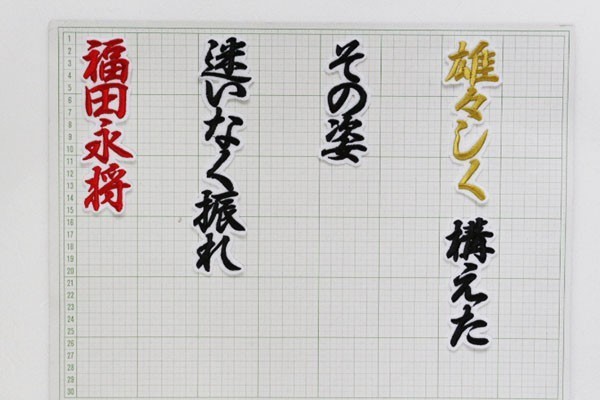 雄々しく 構えた
その姿
迷いなく振れ
福田永将
1
2
3
4
5
6
7
8
9
10
11
12
13
14
15
16
17
18
19
20
21
22
23
24
25
26
27
28
29
30